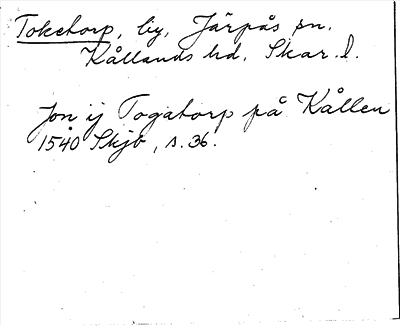 Toketorp, by, Järpås sn.
Kållands hd. Skar. l.
Jon ij Togatorp på Kållen
1540 Skjb, s. 36.